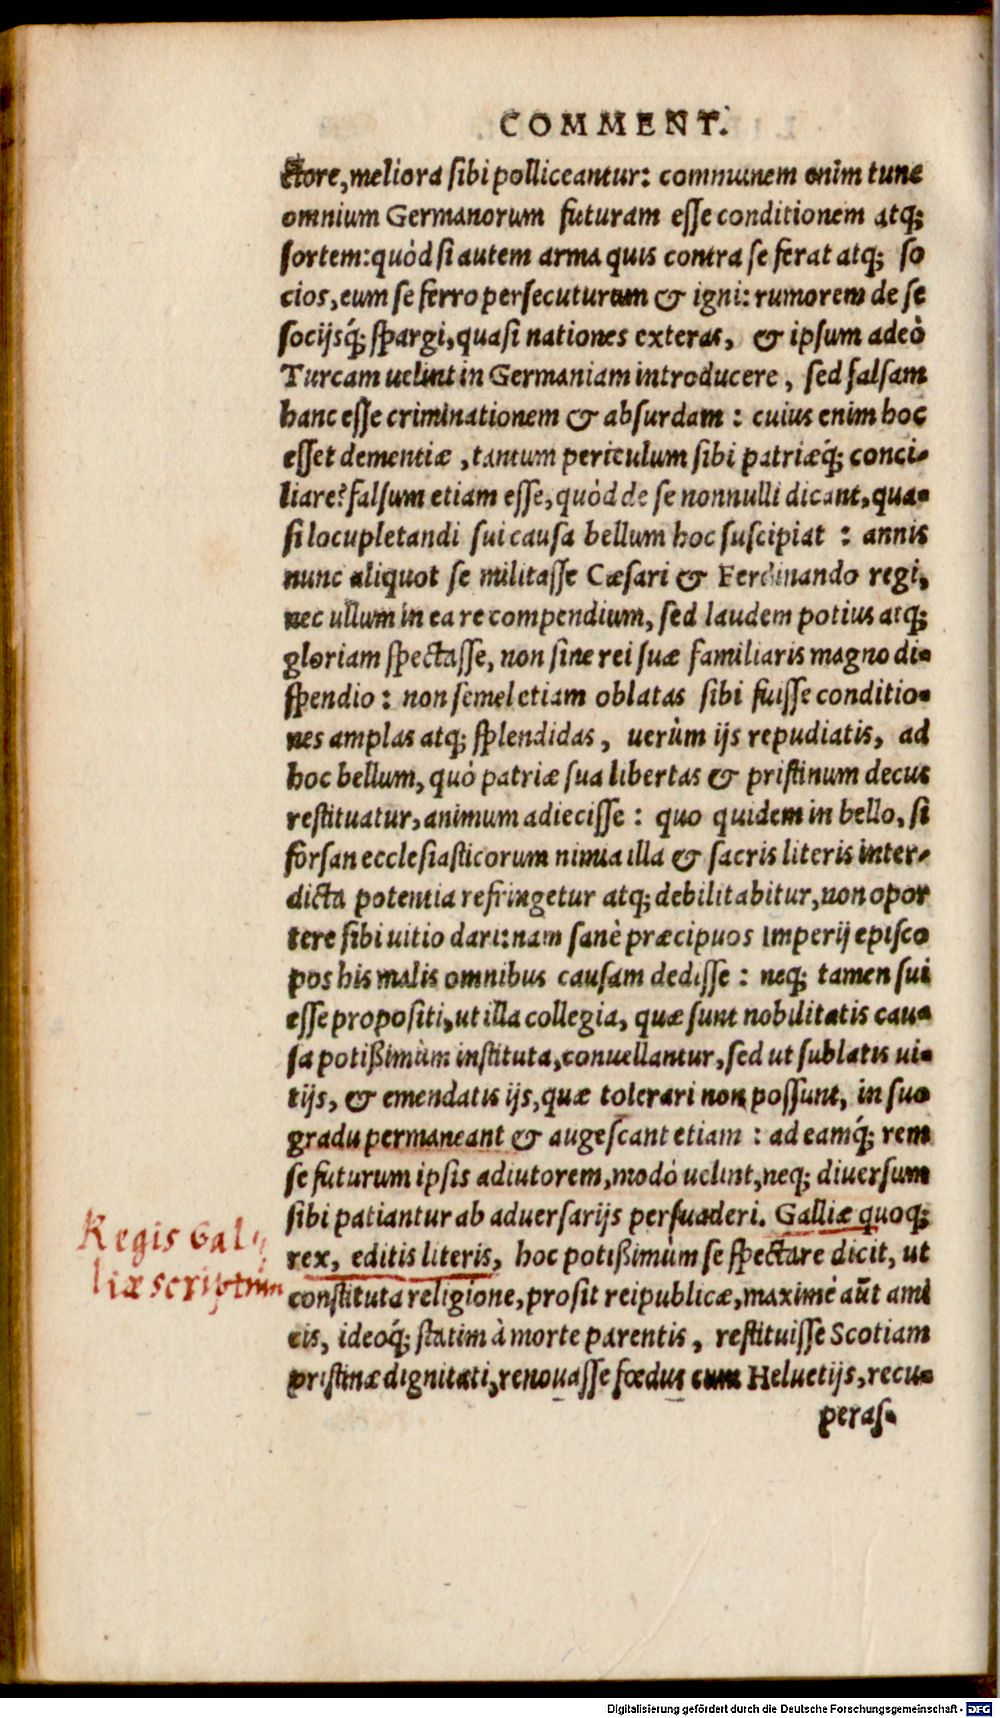 COMMENT.
ctore, meliora sibi polliceantur: communem enim tunc
omnium Germanorum futuram esse conditionem atq;
sortem: quòd si autem arma quis contra se ferat atq; so
cios, eum se ferro persecuturum & igni: rumorem de se
socijsq́; spargi, quasi nationes exteras, & ipsum adeò
Turcam uelint in Germaniam introducere, sed falsam
hanc esse criminationem & absurdam: cuius enim hoc
esset dementiæ, tantum periculum sibi patriæq́; conci-
liare? falsum etiam esse, quòd de se nonnulli dicant, qua-
si locupletandi sui causa bellum hoc suscipiat: annis
nunc aliquot se militasse Cæsari & Ferdinando regi,
nec ullum in ea re compendium, sed laudem potius atq;
gloriam spectasse, non sine rei suæ familiaris magno di-
spendio: non semel etiam oblatas sibi fuisse conditio-
nes amplas atq; splendidas, uerùm ijs repudiatis, ad
hoc bellum, quò patriæ sua libertas & pristinum decus
restituatur, animum adiecisse: quo quidem in bello, si
forsan ecclesiasticorum nimia illa & sacris literis inter-
dicta potentia refringetur atq; debilitabitur, non opor
tere sibi uitio dari: nam sanè præcipuos Imperij episco
pos his malis omnibus causam dedisse: neq; tamen sui
esse propositi, ut illa collegia, quæ sunt nobilitatis cau-
sa potißimùm instituta, conuellantur, sed ut sublatis ui-
tijs, & emendatis ijs, quæ tolerari non possunt, in suo
gradu permaneant & augescant etiam: ad eamq́; rem
se futurum ipsis adiutorem, modò uelint, neq; diuersum
sibi patiantur ab aduersarijs persuaderi. Galliæ quoq;
rex, editis literis, hoc potißimùm se spectare dicit, ut
constituta religione, prosit reipublicæ, maximè aũt ami
cis, ideoq́; statim à morte parentis, restituisse Scotiam
pristinæ dignitati, renouasse fœdus cum Heluetijs, recu-
peras-
Regis Gal-
liæ scriptum
Digitalisierung gefördert durch die Deutsche Forschungsgemeinschaft - DFG